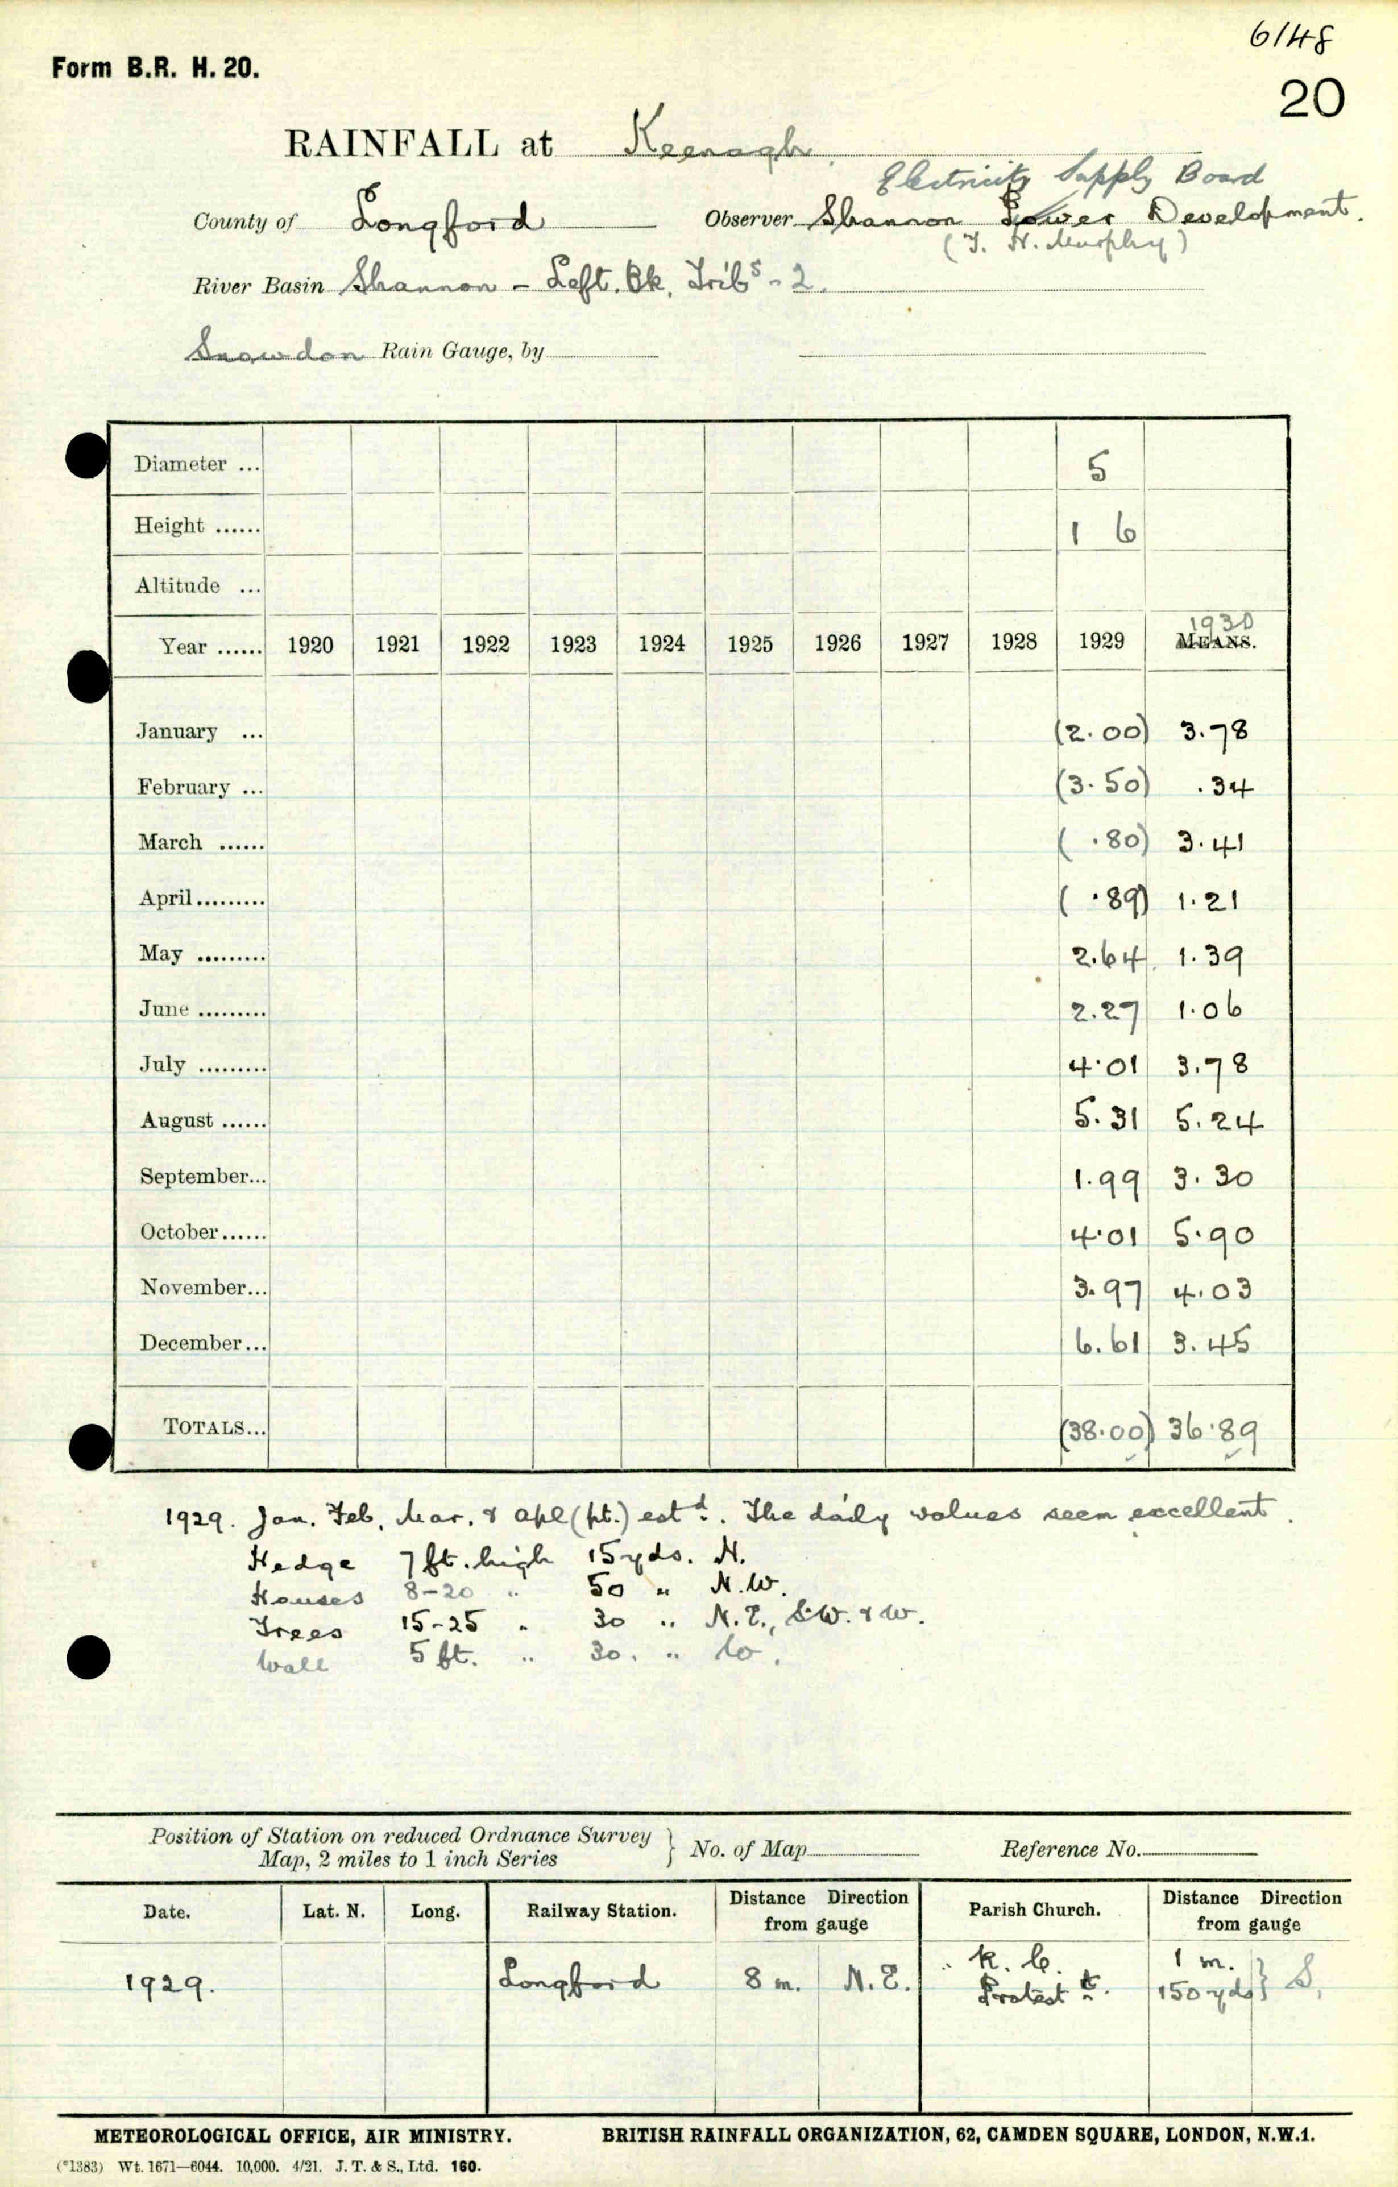 6148
Form B.R. H. 20.
20
RAINFALL at Keenagh
Electricity Supply Board
County of Longford Observer Shannon Power Development.
(T. H. Murphy)
River Basin Shannon - Left. Bk. Tribs - 2.
Snowdon Rain Gauge, by
Diameter ... 5
Height ...... 1 6
Altitude ...
1930
Year ...... 1920 1921 1922 1923 1924 1925 1926 1927 1928 1929 MEANS.
January ... (2.00) 3.78
February ... (3.50) .34
March ...... ( .80) 3.41
April......... ( .89) 1.21
May ......... 2.64 1.39
June ......... 2.27 1.06
July ......... 4.01 3.78
August ...... 5.31 5.24
September... 1.99 3.30
October...... 4.01 5.90
November... 3.97 4.03
December... 6.61 3.45
TOTALS... (38.00) 36.89
1929. Jan. Feb, Mar, & Apl (pt.) estd. The daily values seem excellent.
Hedge 7 ft. high 15 yds. N.
Houses 8-20 " 50 " N.W.
Trees 15-25 " 30 " N.E., S.W. & W.
Wall 5 ft. " 30. " W.
Position of Station on reduced Ordnance Survey
Map, 2 miles to 1 inch Series } No. of Map Reference No.
Date. Lat. N. Long. Railway Station. Distance Direction from gauge Parish Church. Distance Direction from gauge
1929. Longford 8 m. N.E. R. C. 1 m. } S.
Protest t. 150 yds
METEOROLOGICAL OFFICE, AIR MINISTRY. BRITISH RAINFALL ORGANIZATION, 62, CAMDEN SQUARE, LONDON, N.W.1.
(*1383) Wt. 1671—6044. 10,000. 4/21. J. T. & S., Ltd. 160.